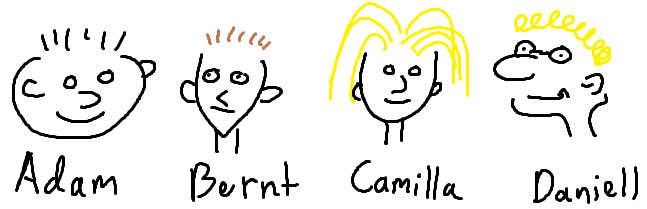 Adam Bernt Camilla Daniell